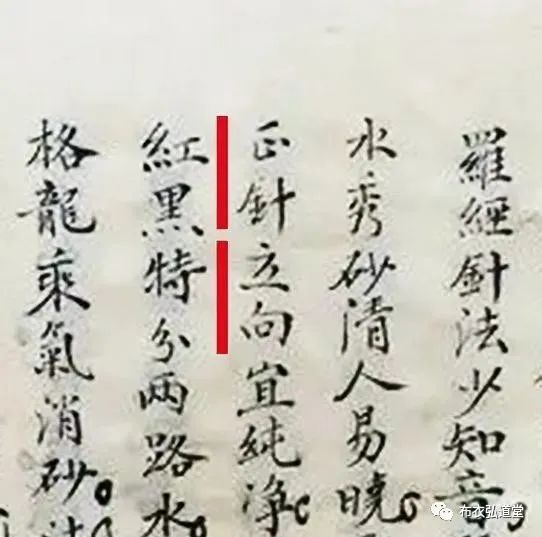 羅經針法少知音
水秀砂清人易曉
正針立向宜純净
紅黑特分兩路水
格龍乘氣消砂
布衣弘道堂